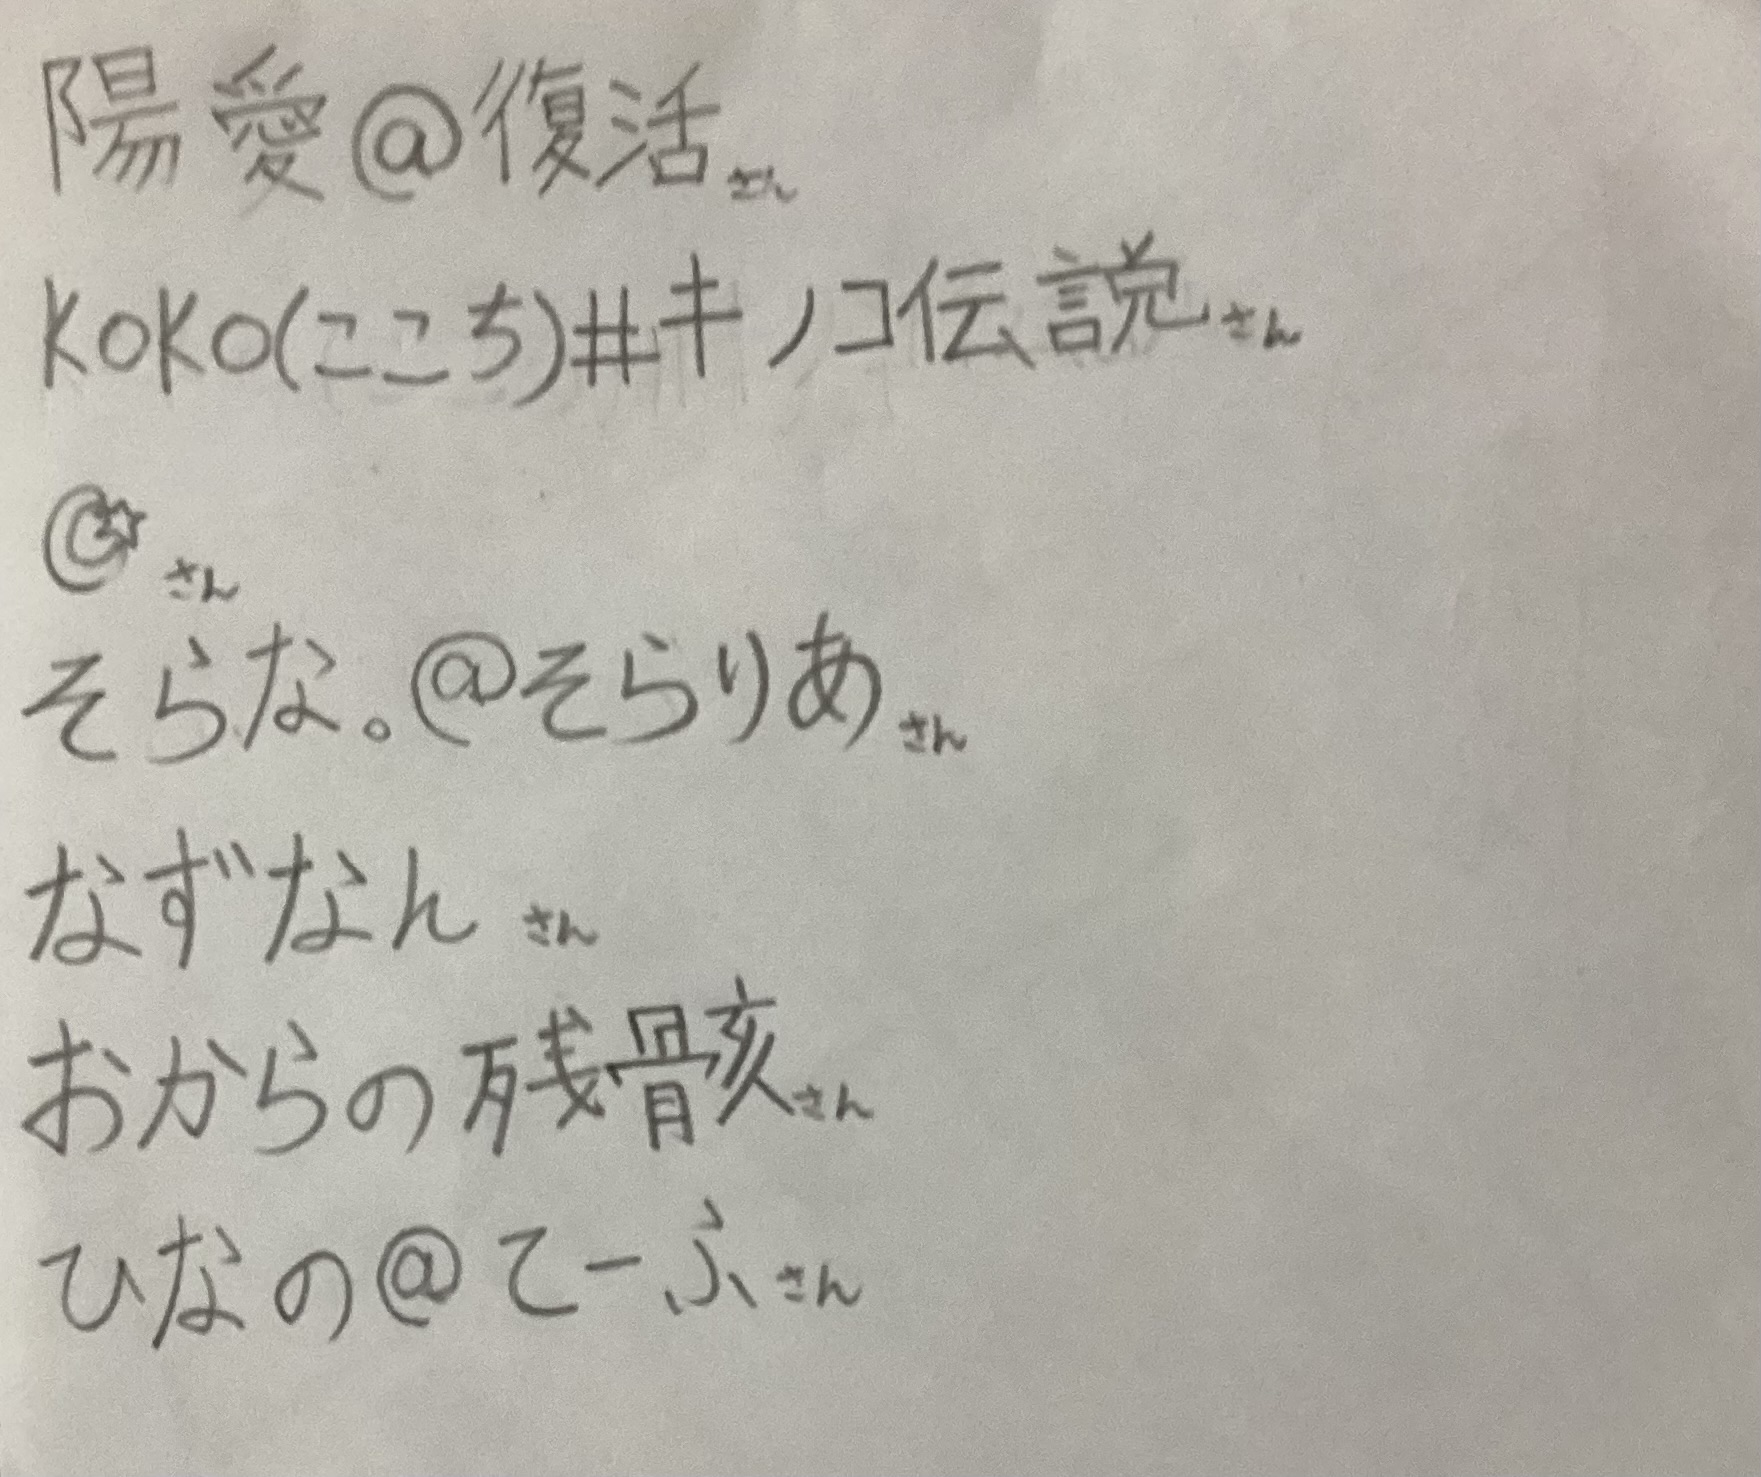 陽愛@復活さん
KOKO(ここち)#キノコ伝説さん
☪さん
そらな。@そらりあさん
なずなんさん
おからの残骸さん
ひなの@てーふさん